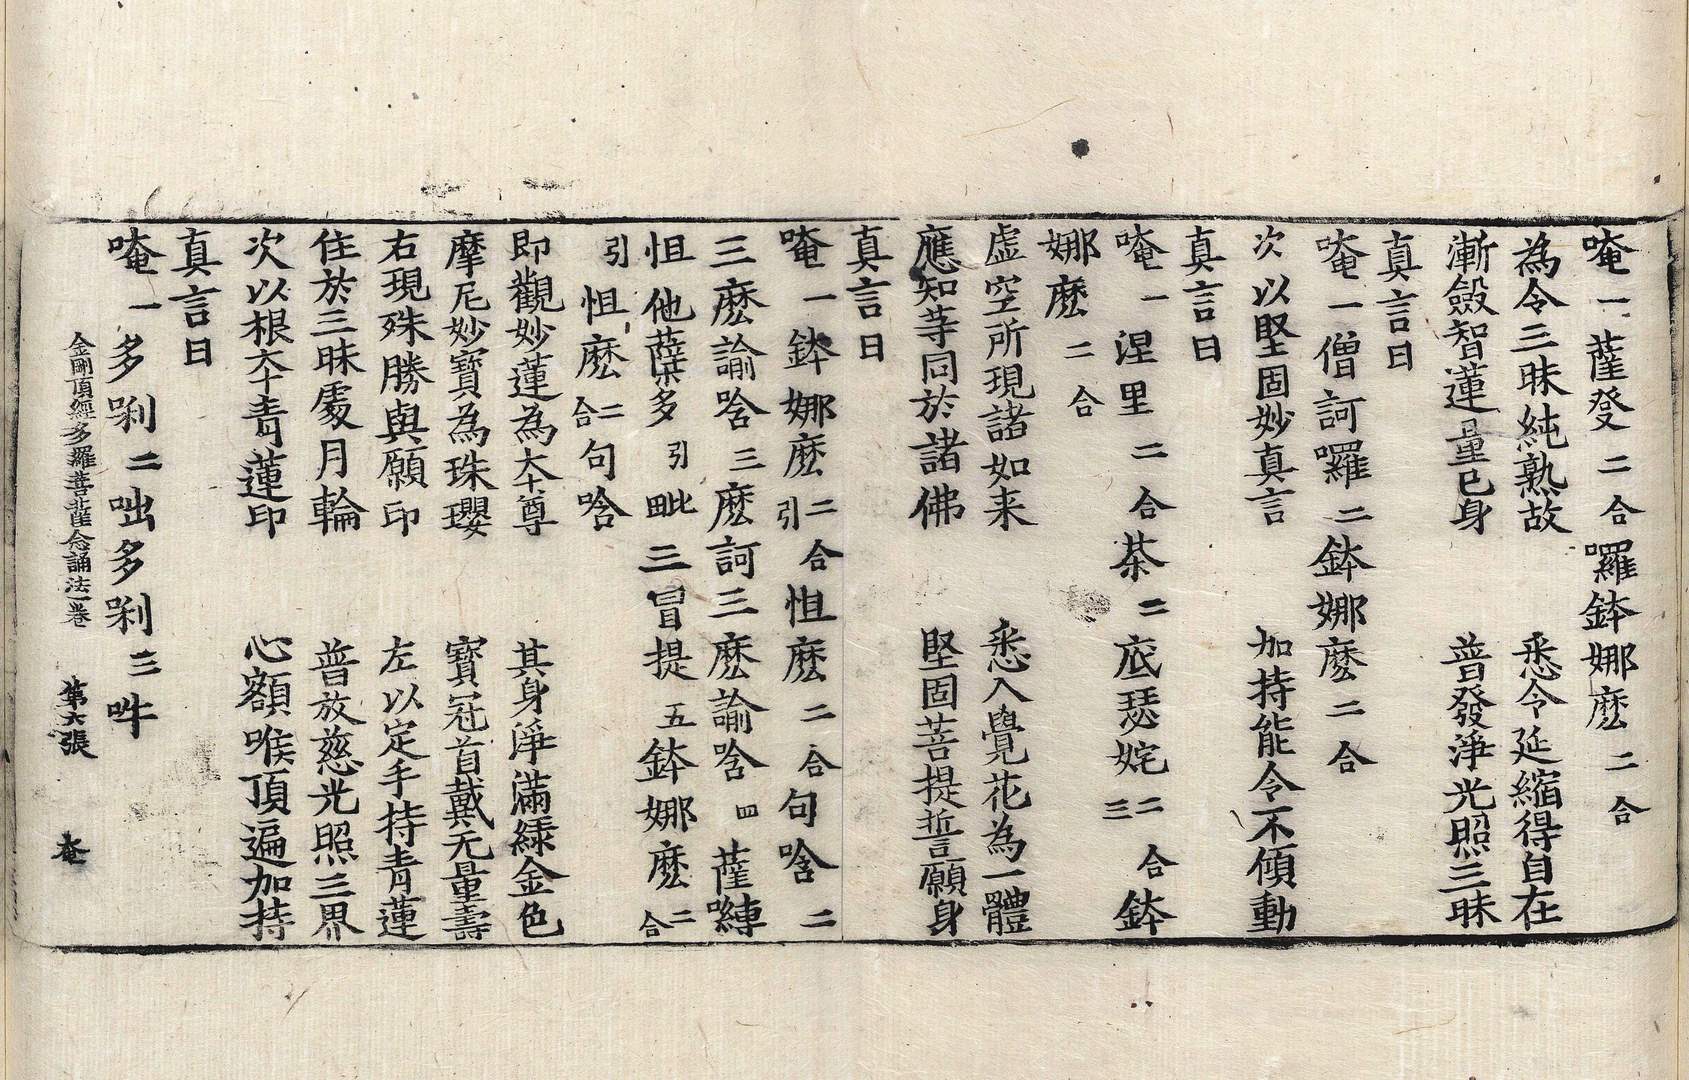 唵一薩癹二合囉鉢娜麽二合
為令三昧純熟故　悉令延縮得自在
漸斂智蓮量已身　普發淨光照三昧
真言曰
唵一僧訶囉二鉢娜麽二合
次以堅固妙真言　加持能令不傾動
真言曰
唵一涅里二合茶二底瑟姹二合三鉢
娜麽二合
虛空所現諸如来　悉入覺花為一體
應知等同於諸佛　堅固菩提誓願身
真言曰
唵一鉢娜麽二合引怛麽二合句唅二
三麽諭唅三麽訶三麽諭唅四薩嚩
怛他蘖多引毗三冒提五鉢娜麽二合
引怛麽二合句唅
即觀妙蓮為夲尊　其身淨滿綠金色
摩尼妙寶為珠瓔　寶冠首戴无量壽
右現殊勝與願印　左以定手持青蓮
住於三昧處月輪　普放慈光照三界
次以根夲青蓮印　心額喉頂遍加持
真言曰
唵一多剃二咄多剃三吽
金剛頂經多羅菩薩念誦法一卷　第六張　奄